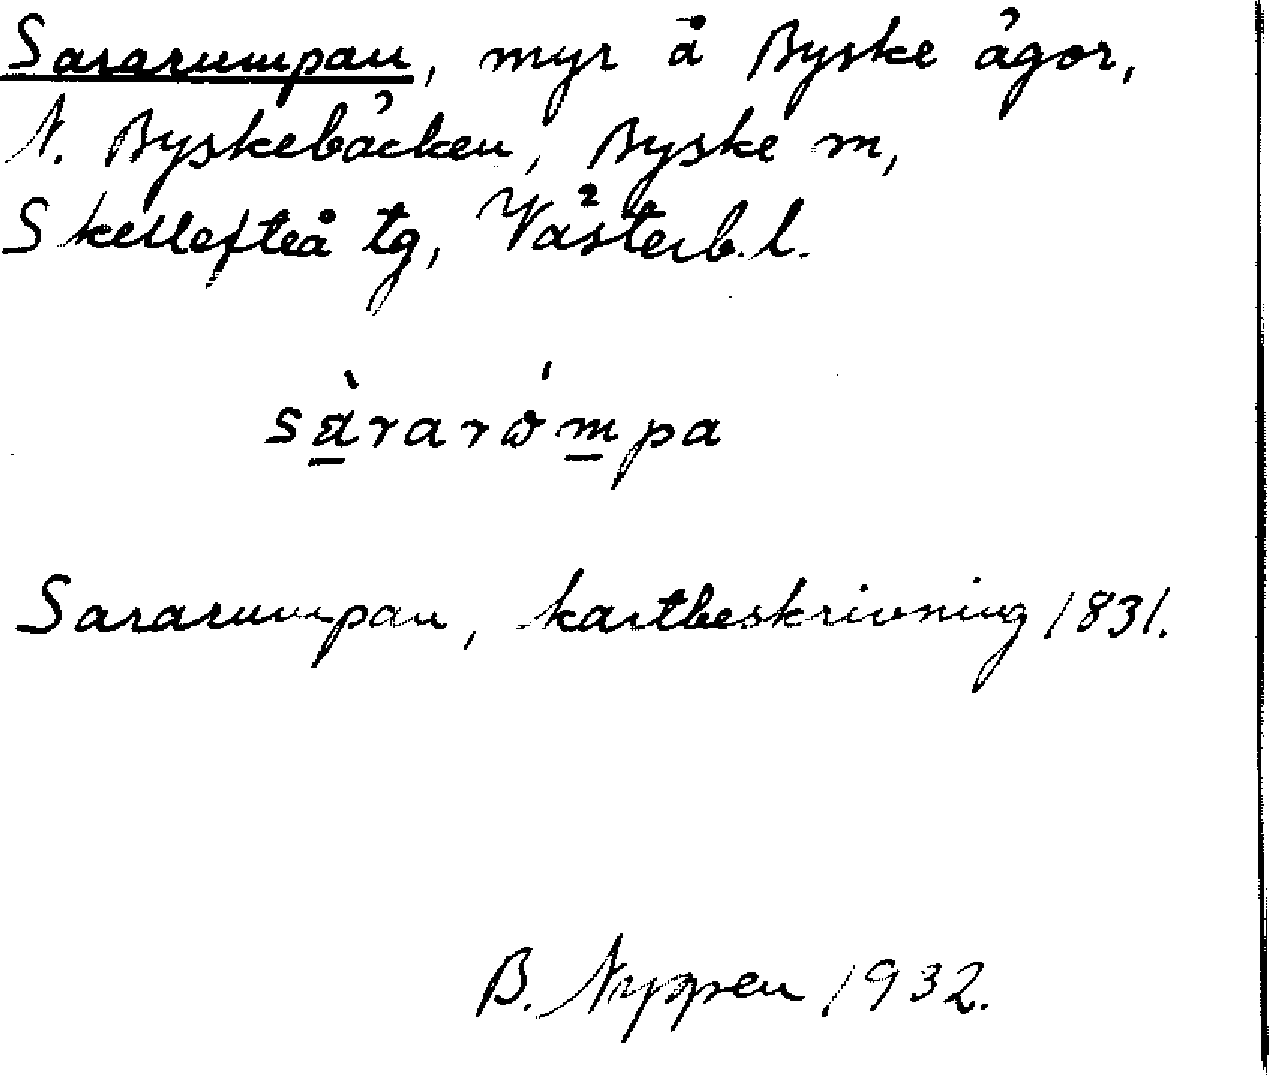 Sararumpan, myr å Byske ägor,
N. Byskebäcken, Byske m,
Skellefteå tg, Västerb. l.
sàrarómpa
Sararumpan, kartbeskrivning 1831.
B. Nyppen 1932.